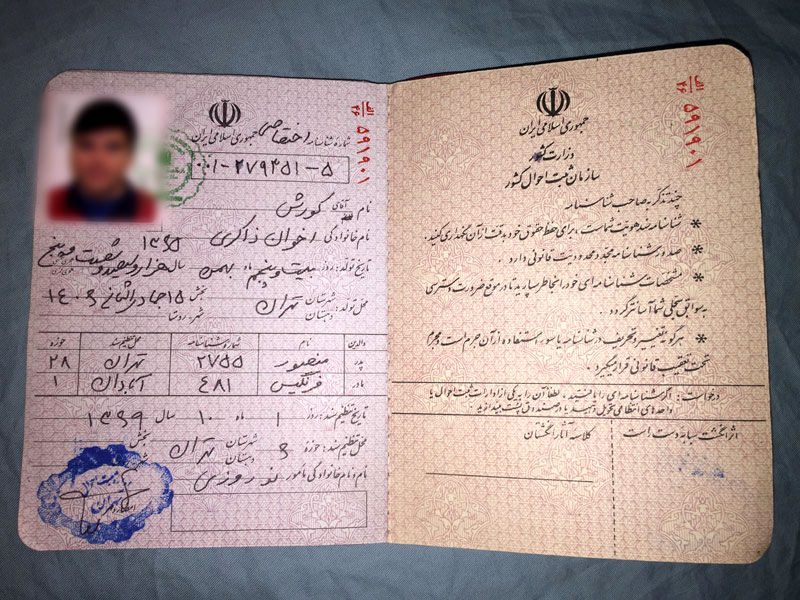 جمهوری اسلامی ایران
وزارت کشور
سازمان ثبت احوال کشور
الف
۲۶
۵۹۱۹۰۱
چند تذکر به صاحب شناسنامه
* شناسنامه سند هویت شماست، برای حفظ حقوق خود بدقت از آن نگهداری کنید.
* صدور شناسنامه مجدد محدودیت قانونی دارد.
* مشخصات شناسنامه‌ای خود را بخاطر بسپارید تا در موقع ضرورت دسترسی
به سوابق سجلی شما آسانتر گردد.
* هرگونه تغییر و تحریف در شناسنامه یا سوء استفاده از آن جرم است و مجرم
تحت تعقیب قانونی قرار میگیرد.
درخواست: اگر شناسنامه‌ای را یافتید، لطفاً آن را به یکی از ادارات ثبت احوال یا
واحدهای انتظامی تحویل دهید یا در صندوق پست بیندازید
اثر انگشت سبابه دست است
کلاسه آثار انگشتان
جمهوری اسلامی ایران
الف
۲۶
۵۹۱۹۰۱
شماره شناسنامه اختصاصی
۰۰۱-۲۷۹۴۵۱-۵
نام آقای کورش
نام خانوادگی اخوان ذاکری
تاریخ تولد: روز بیست و پنجم ماه بهمن سال هزار و سیصد و شصت و پنج
۱۳۶۵
محل تولد: شهرستان تهران بخش ۱۵ جمادی الثانی ۱۴۰۶
دهستان شهر، روستا
والدین نام شماره شناسنامه محل تنظیم سند حوزه
پدر منصور ۲۷۵۵ تهران ۲۸
مادر فرنگیس ۴۸۱ آبادان ۱
تاریخ تنظیم سند: روز ۱ ماه ۱۰ سال ۱۳۶۹
محل تنظیم سند: حوزه ۳ شهرستان تهران بخش
دهستان
نام و نام خانوادگی مامور نوروزی